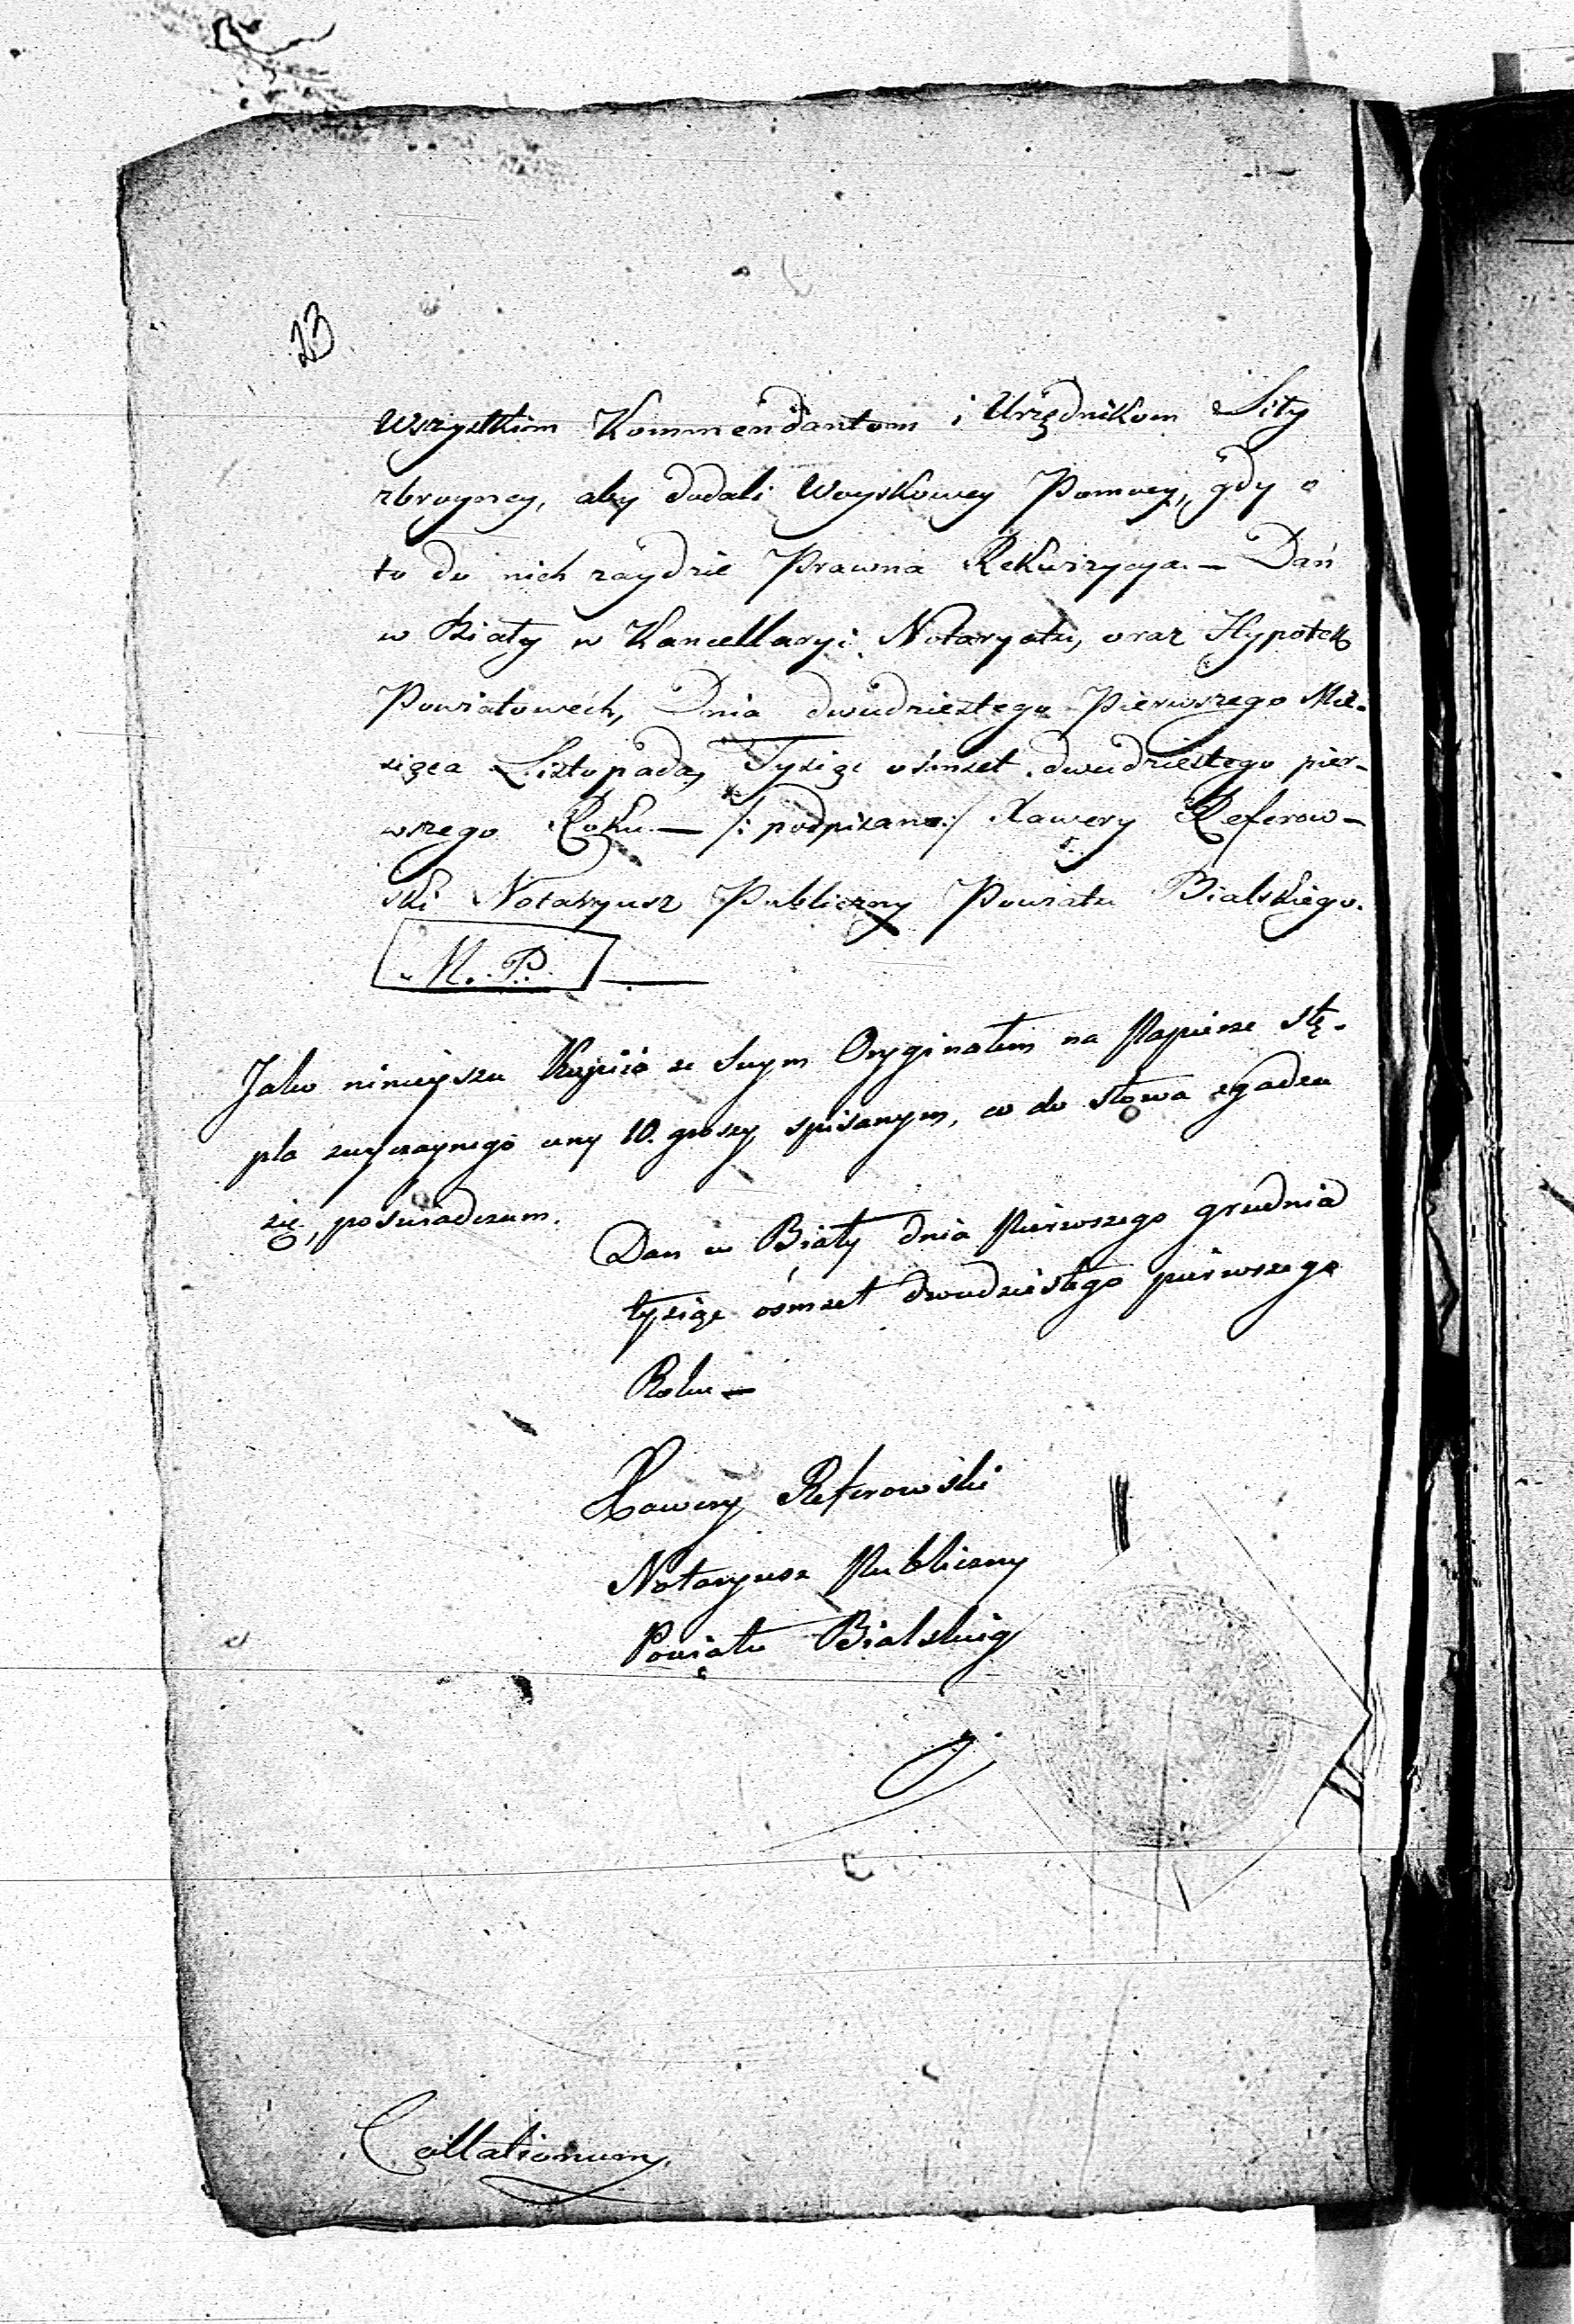 23
Wszystkim Kommendantom i Urzędnikom Siły
zbroyney, aby dodali Woyskowey Pomocy, gdy o
to do nich zaydzie Prawna Rekwizycya. — Dań
w Biały w Kancellaryi Notaryatu, oraz Hypotek
Powiatowéch, Dnia dwudziestego Pierwszego Mie-
siąca Listopada, Tysiąc ośmset dwudziestego pier-
wszego Roku. — /: podpisano :/ Xawery Referow-
ski Notaryusz Publiczny Powiatu Bialskiego.
M. P. —
Jako ninieysza Kopiia ze swym Oryginałem na Papierze stę-
pla zwyczaynego ceny 10. groszy spisanym, co do słowa zgadza
się, poswiadczam.
Dan w Biały dnia Pierwszego grudnia
tysiąc osmset dwudziestego pierwszego
Roku —
Xawery Referowski
Notaryusz Publiczny
Powiatu Bialskieg
Collationum